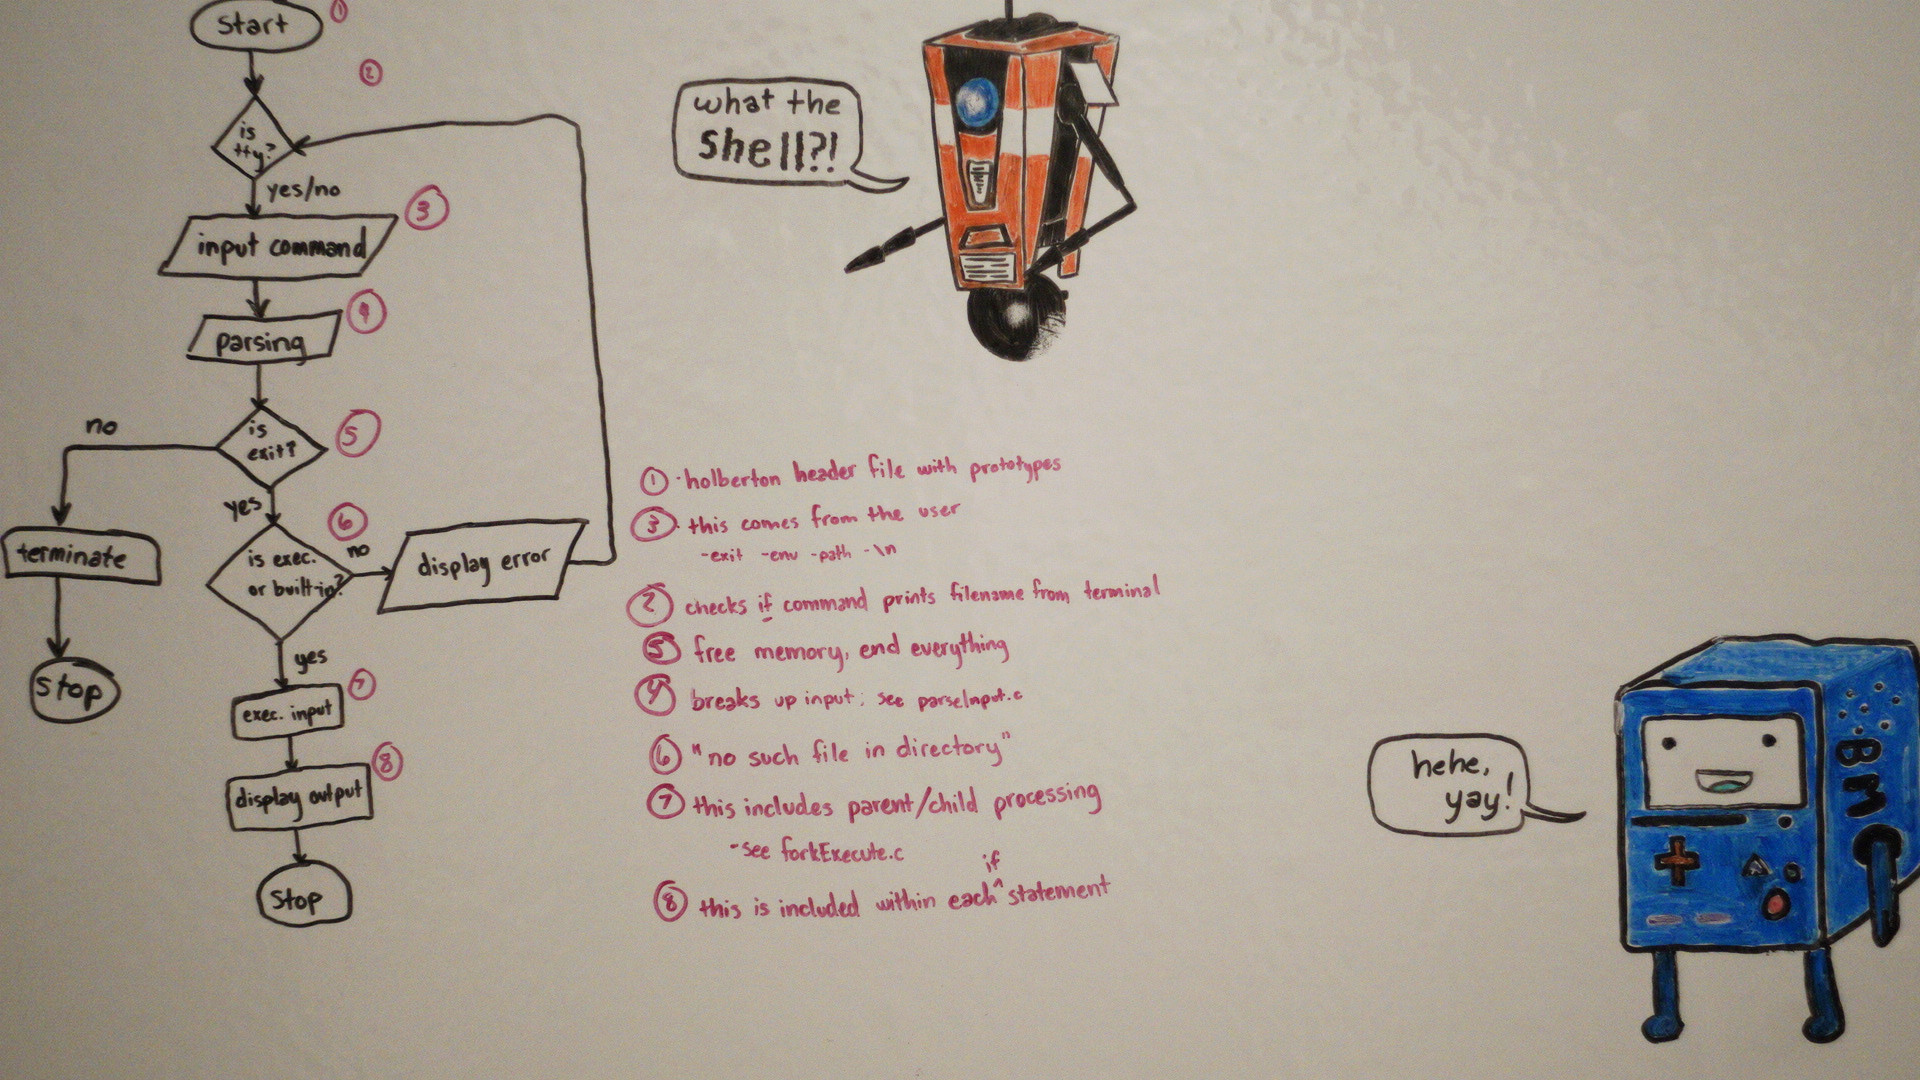 Start
1
2
is
tty?
yes/no
input command
3
parsing
4
is
exit?
5
no
yes
terminate
stop
6
is exec.
or built-in?
no
display error
yes
exec. input
7
display output
8
stop
what the
shell?!
1 holberton header file with prototypes
3 this comes from the user
-exit -env -path -\n
2 checks if command prints filename from terminal
5 free memory, end everything
4 breaks up input; see parseInput.c
6 "no such file in directory"
7 this includes parent/child processing
-see forkExecute.c
8 this is included within each if statement
hehe,
yay!
BMO